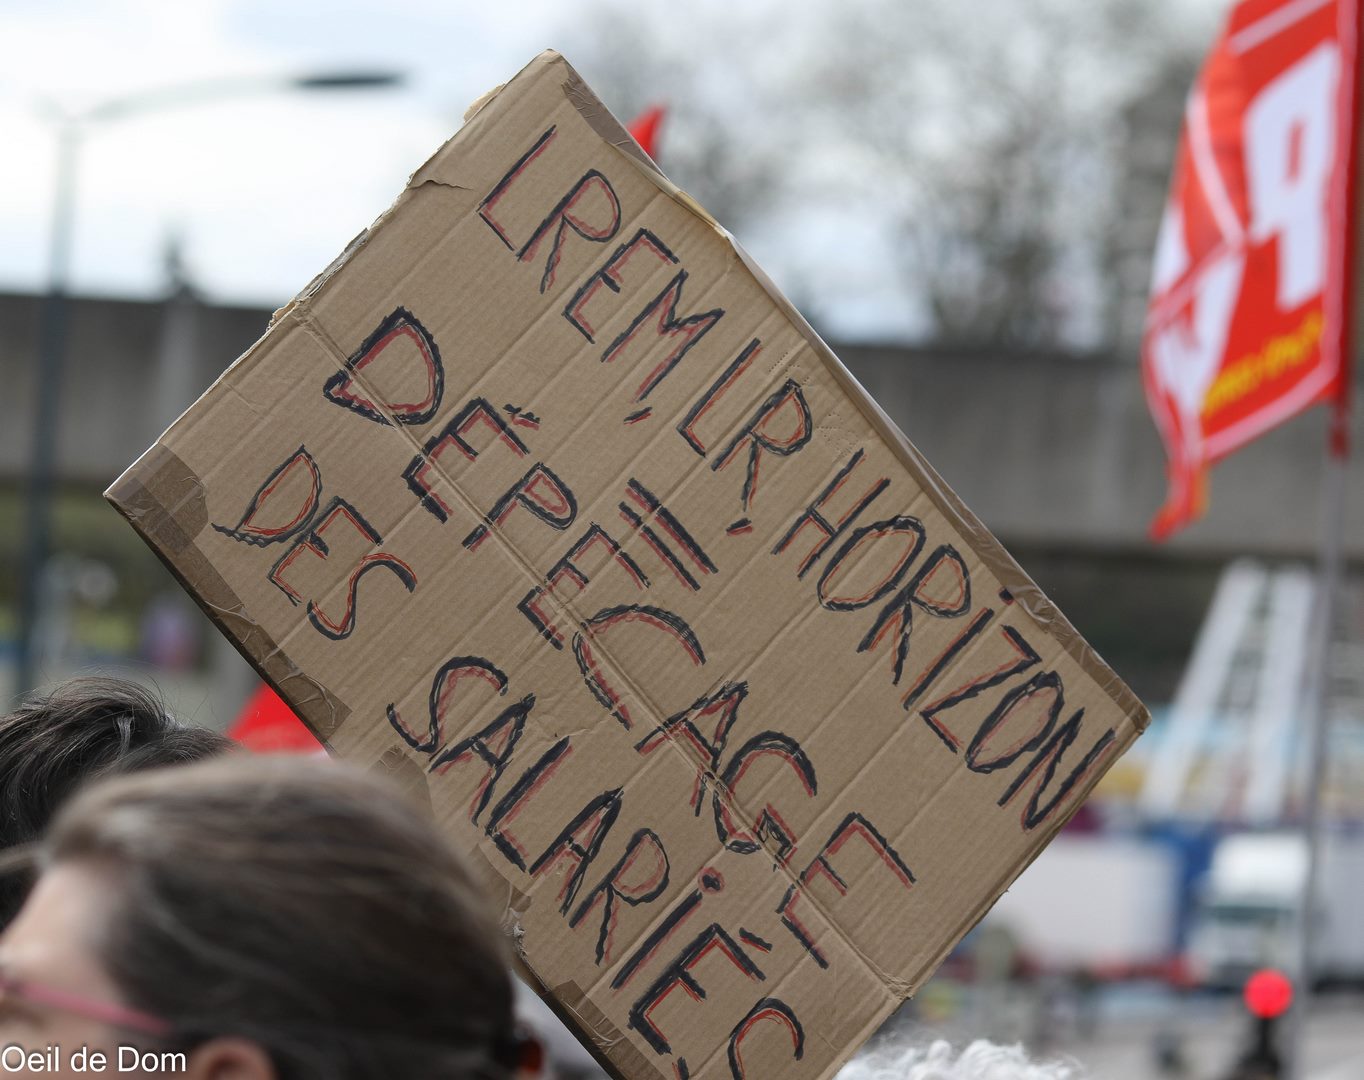 LREM LR HORIZON
=
DÉPEÇAGE
DES SALARIÉS
Oeil de Dom